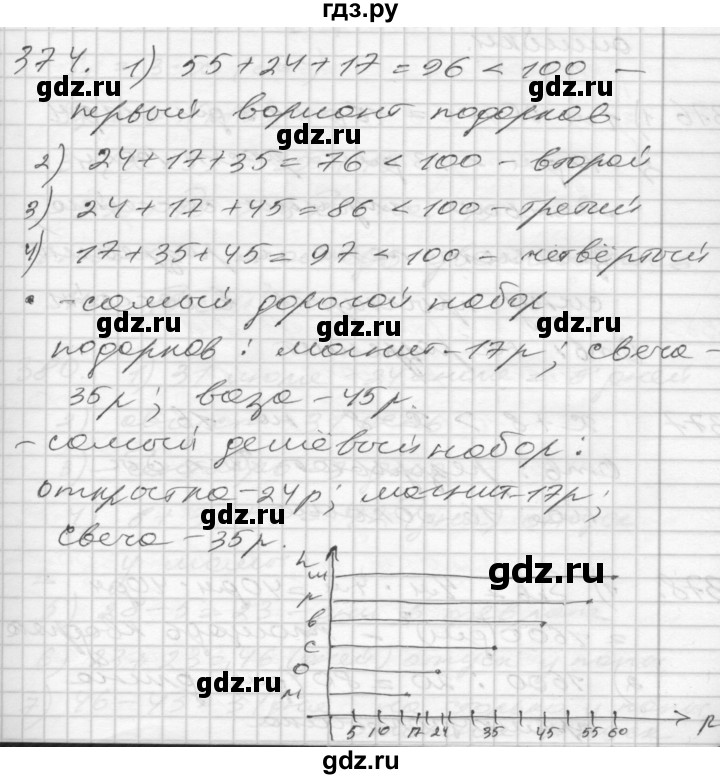 гдз.ру
374. 1) 55+24+17=96<100 –
первый вариант подарков
2) 24+17+35=76<100 – второй
3) 24+17+45=86<100 – третий
4) 17+35+45=97<100 – четвёртый
• – самый дорогой набор
подарков: магнит – 17р; свеча –
35р; ваза – 45р.
– самый дешёвый набор:
открытка – 24р; магнит – 17р;
свеча – 35р.
ш
р
в
с
о
м
5 10 17 24 35 45 55 60 р
gdz.ru
gdz.ru
gdz.ru
gdz.ru
gdz.ru
gdz.ru
gdz.ru
gdz.ru
gdz.ru
gdz.ru
gdz.ru
gdz.ru
gdz.ru